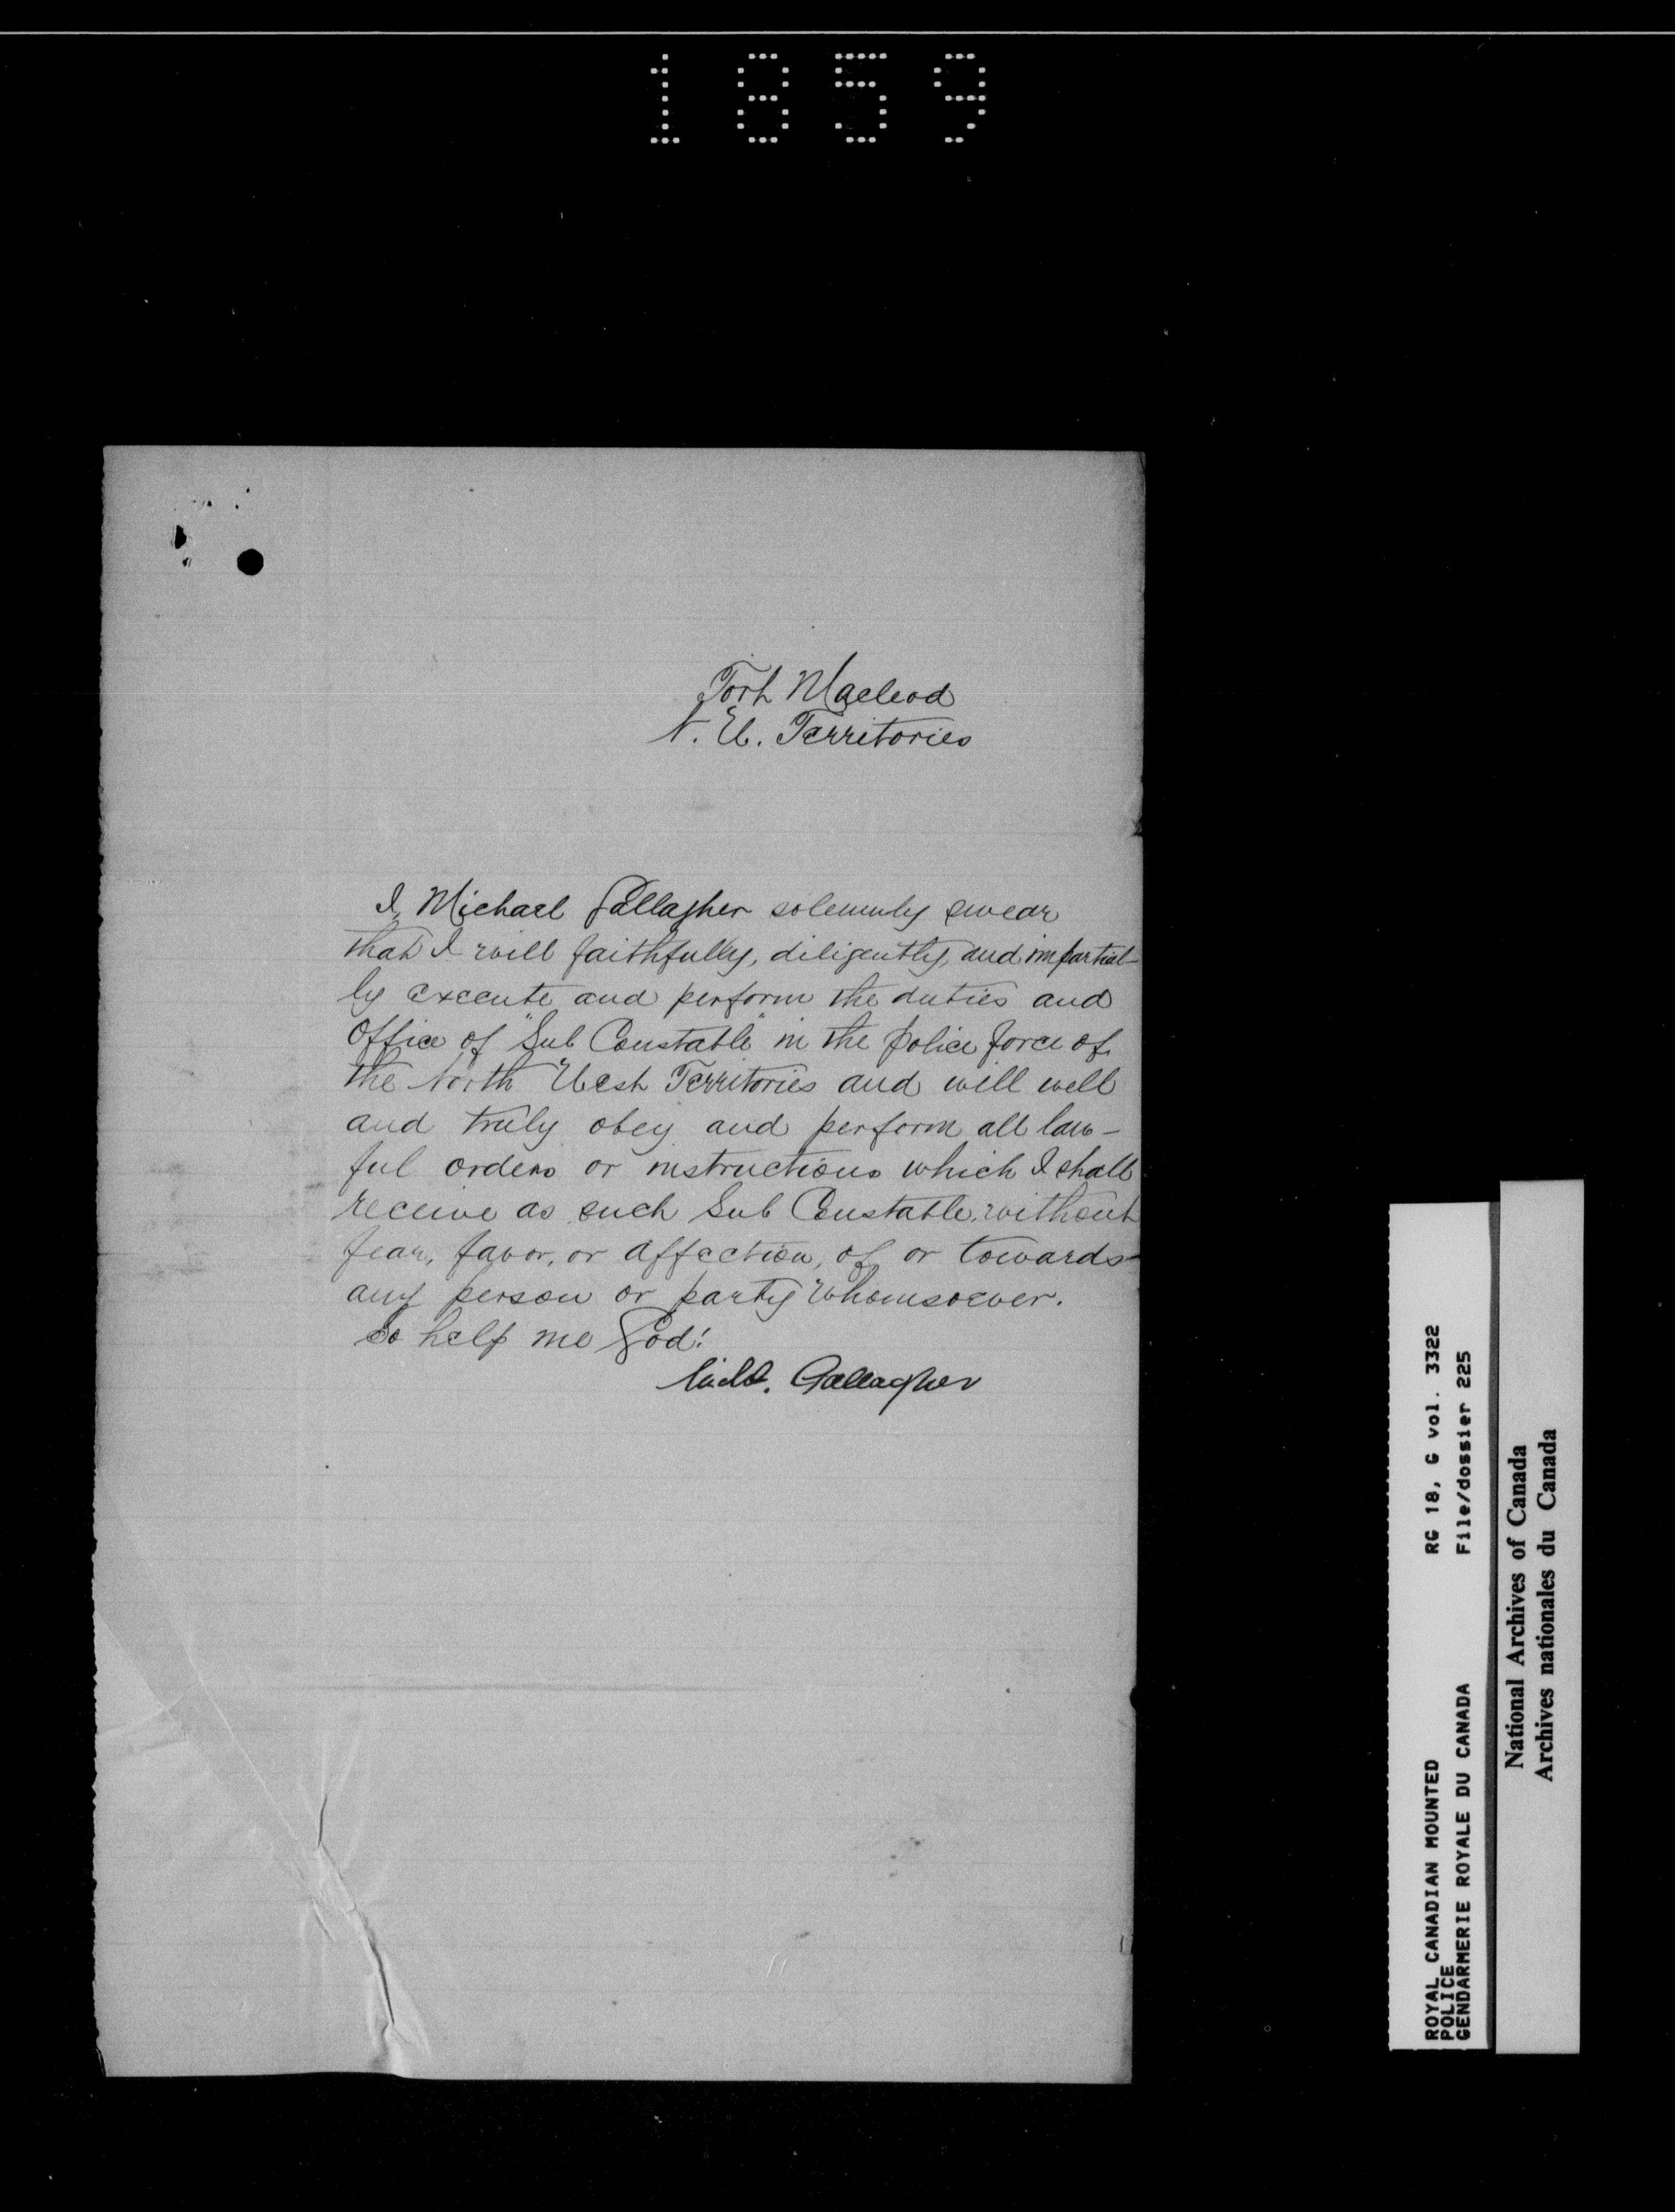 1859
Fort Macleod
N. W. Territories
I, Michael Gallagher solemnly swear
that I will faithfully, diligently, and impartial-
ly execute and perform the duties and
Office of "Sub Constable" in the police force of
the North West Territories and will well
and truly obey and perform all law-
ful orders or instructions which I shall
receive as such Sub Constable, without
fear, favor, or affection, of or towards
any person or party whomsoever.
So help me God!
Gallagher
ROYAL CANADIAN MOUNTED
POLICE
GENDARMERIE ROYALE DU CANADA
RG 18, G vol. 3322
File/dossier 225
National Archives of Canada
Archives nationales du Canada